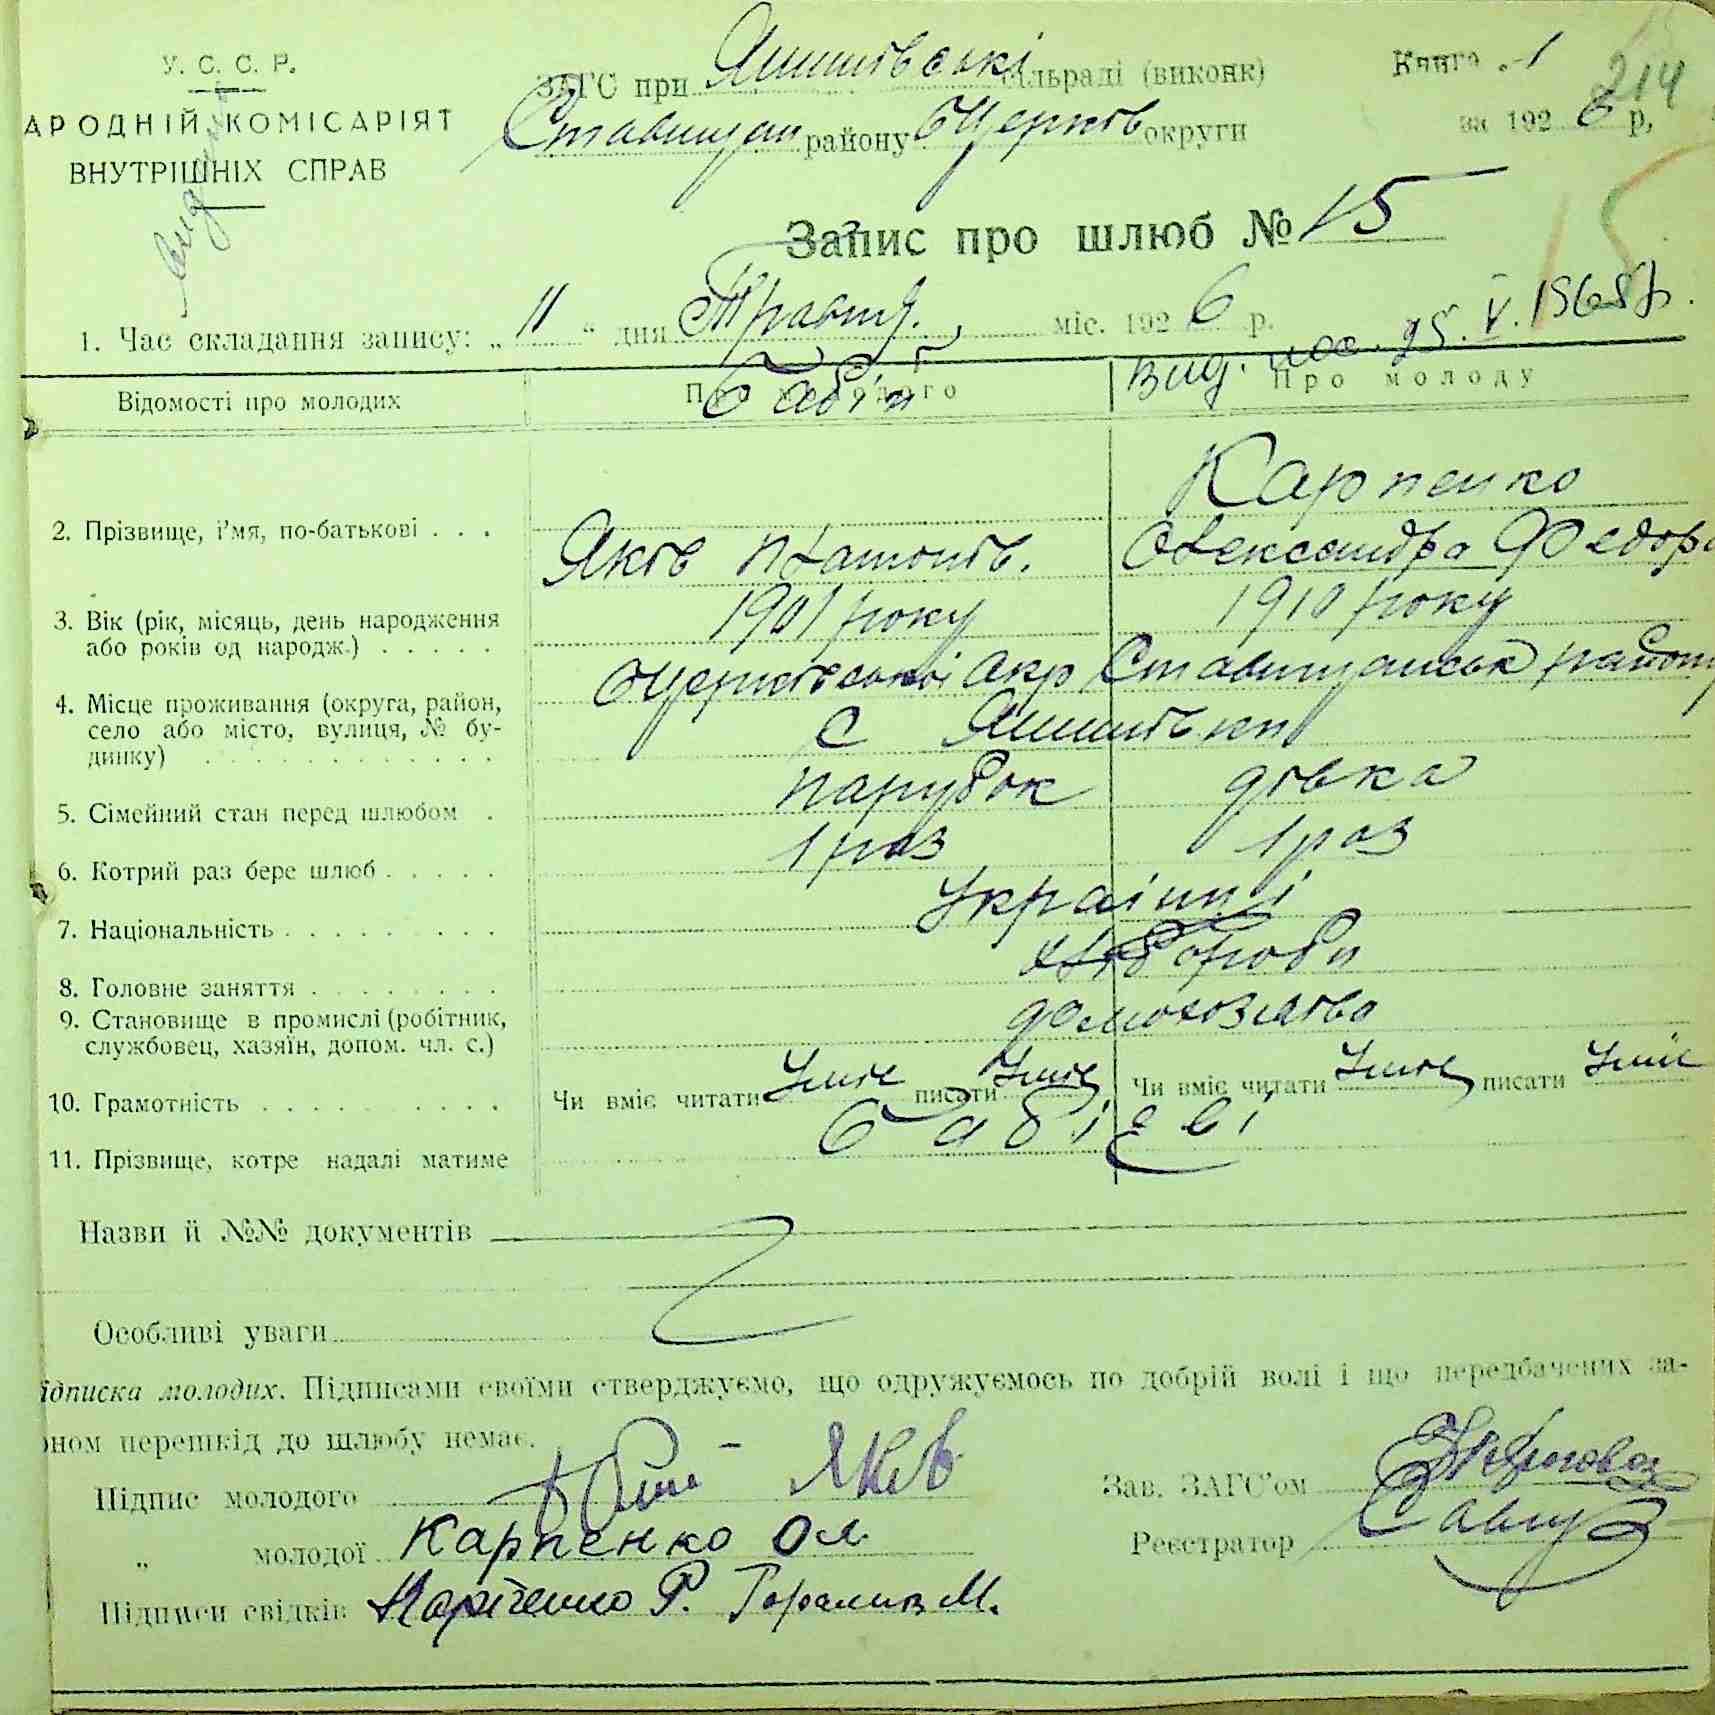 У. С. С. Р.
АРОДНІЙ КОМІСАРІЯТ
ВНУТРІШНІХ СПРАВ
ЗАГС при Яшитівські сільраді (виконк)
Ставищан району БЦерків округи
Книга 1
214
за 1926 р.
Запис про шлюб № 15
15
1. Час складання запису: „11“ дня Травня міс. 1926 р.
Вид. 25.V.1968р.
Відомості про молодих Про молодого Про молоду
Бабій
Карпенко
2. Прізвище, і'мя, по-батькові . . .
Яків Платонів. Олександра Федор
3. Вік (рік, місяць, день народження
або років од народж.) . . . . .
1901 року 1910 року
4. Місце проживання (округа, район,
село або місто, вулиця, № бу-
динку) . . . . . . . . . . . .
БЦерківської Окр Ставищанськ району
с
5. Сімейний стан перед шлюбом .
парубок дівка
6. Котрий раз бере шлюб . . . . .
1 раз 1 раз
7. Національність . . . . . . . . .
Українці
8. Головне заняття . . . . . . . .
хлібороби
9. Становище в промислі (робітник,
службовец, хазяїн, допом. чл. с.)
10. Грамотність . . . . . . . . . .
Чи вміє читати Уміє писати Уміє Чи вміє читати Уміє писати Уміє
11. Прізвище, котре надалі матиме
Бабієві
Назви й №№ документів
Особливі уваги
ідписка молодих. Підписами своїми стверджуємо, що одружуємось по добрій волі і що передбачених за-
оном перешкід до шлюбу немає.
Підпис молодого Яків Зав. ЗАГС'ом
„ молодої Карпенко Ол Реєстратор
Підписи свідків